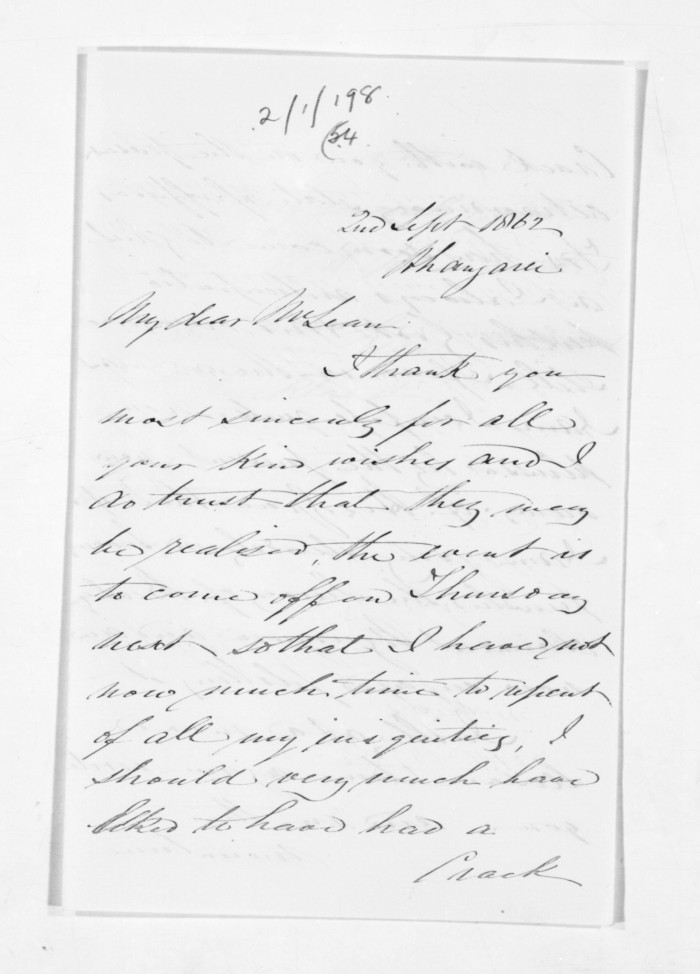 2/1/198
(24.
2nd Sept 1862
Whangarei
My dear McLean
I thank you
most sincerely for all
your kind wishes and I
do trust that they may
be realised, the event is
to come off on Thursday
next so that I have not
now much time to repent
of all my iniquities, I
should very much have
liked to have had a
Crack